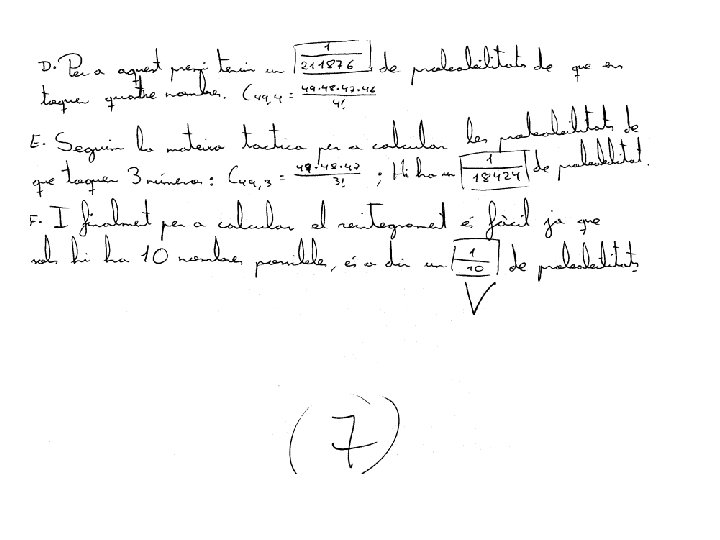 D. Per a aquest premi tenim un 1/211876 de probabilitats de que en
toquen quatre nombres. C49,4 = 49·48·47·46/4!
E. Seguim la mateixa tactica per a calcular les probabilitats de
que toquen 3 números: C49,3 = 49·48·47/3! ; Hi ha un 1/18424 de probabilitat.
F. I finalment per a calcular el reintegrament és fàcil ja que
sols hi ha 10 nombres possibles, és a dir un 1/10 de probabilitats
(7)